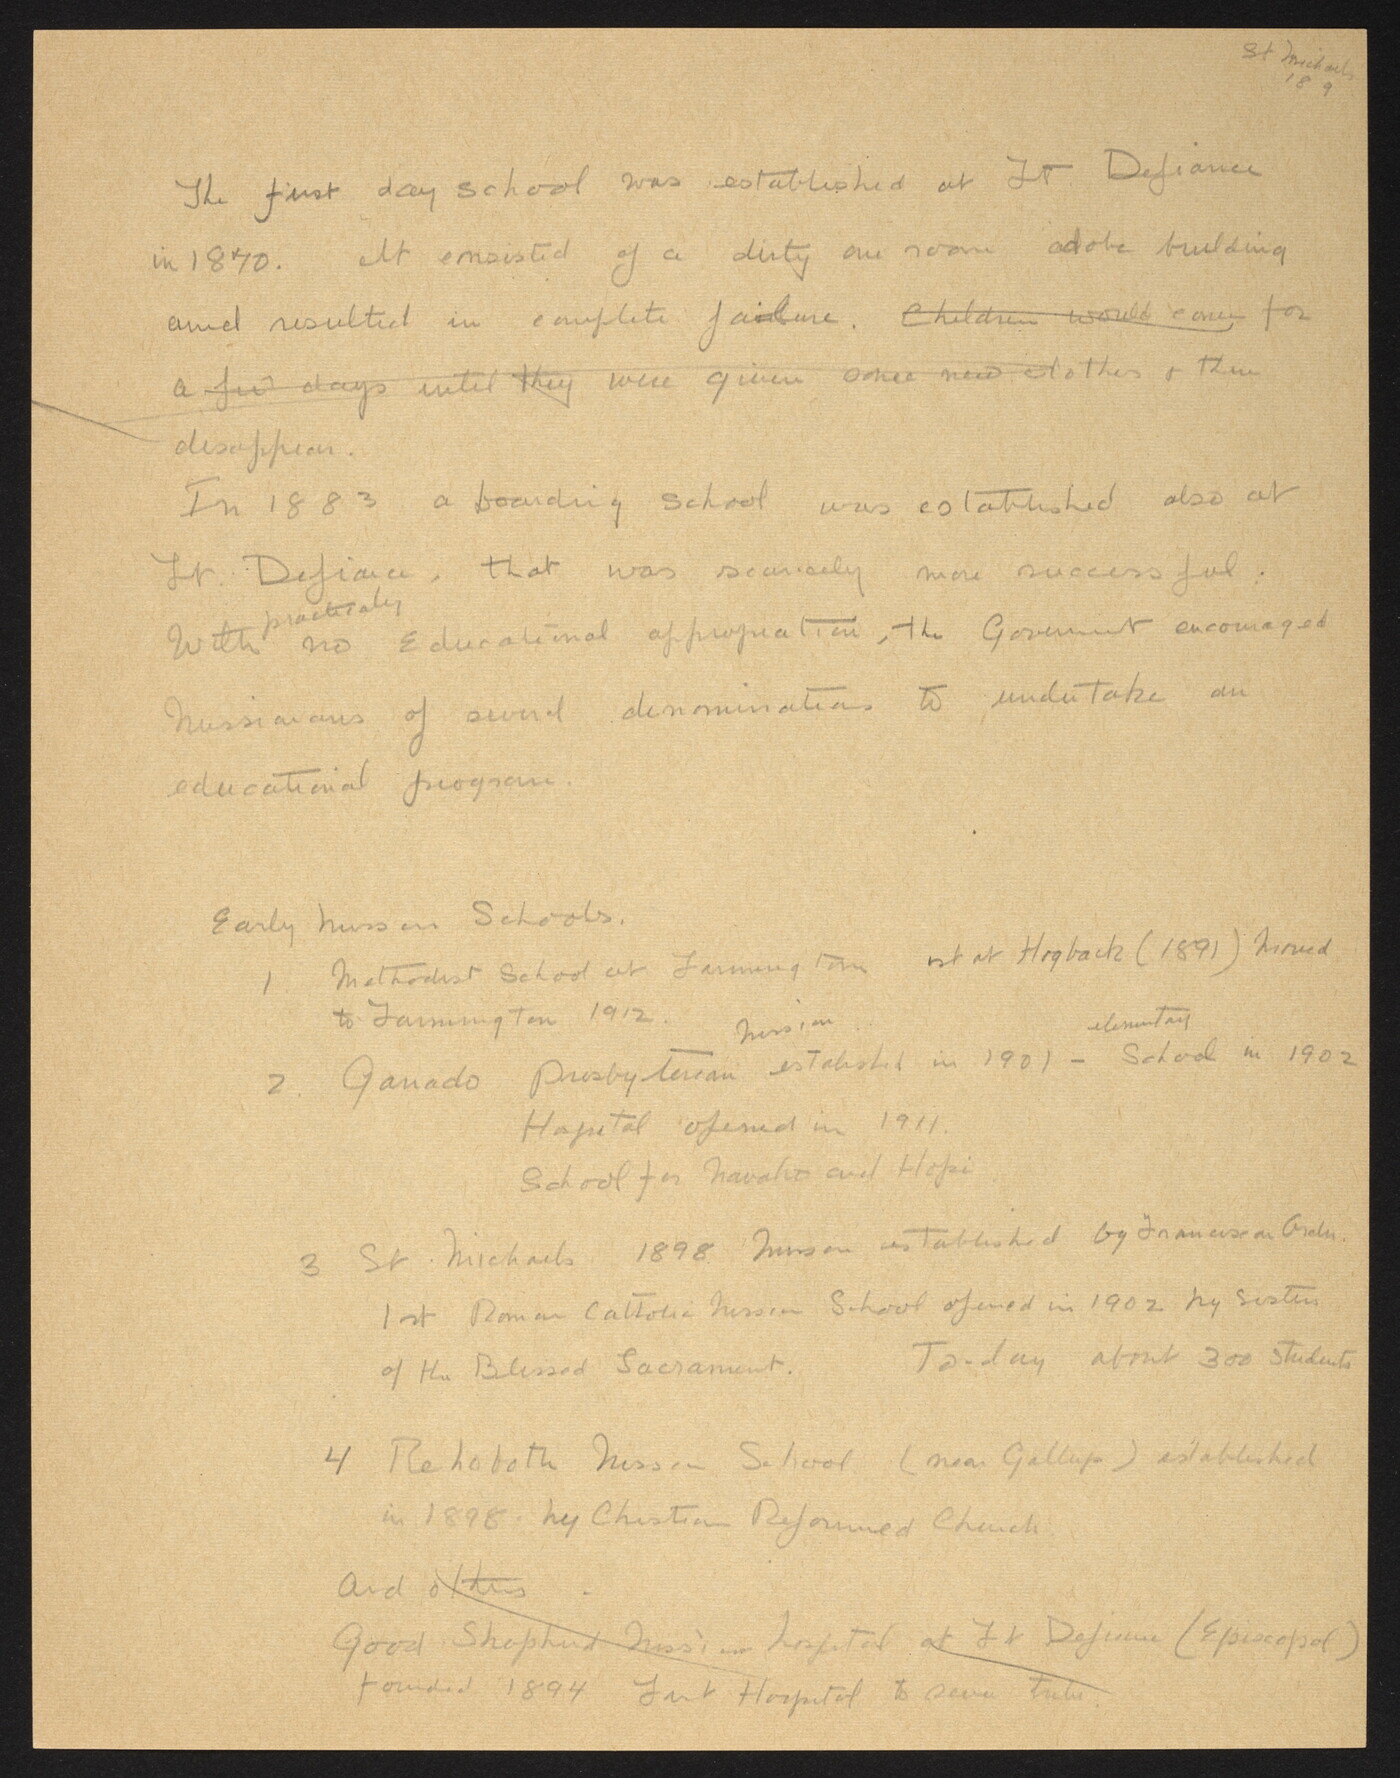 St Michaels
18 9
The first day school was established at Ft Defiance
in 1870. It consisted of a dirty one room adobe building
and resulted in complete failure. Children would come for
a few days until they were given some new clothes & then
disappear.
In 1883 a boarding school was established also at
Ft. Defiance, that was scarcely more successful.
practicaly
With no Educational appropriation, the Government encouraged
Missionaries of several denominations to undertake an
educational program.
Early Mission Schools.
1. Methodist School at Farmington 1st at Hogback (1891) Moved
to Farmington 1912.
Mission elementary
2. Ganado Presbyterian established in 1901 - School in 1902
Hospital opened in 1911.
School for Navaho and Hopi
3 St. Michaels 1898 Mission established by Franciscan Order.
1st Roman Catholic Mission School opened in 1902 by Sisters
of the Blessed Sacrament. To-day about 300 students
4 Rehoboth Mission School (near Gallup) established
in 1898 by Christian Reformed Church.
And others
Good Shepherd Mission hospital at Ft Defiance (Episcopal)
founded 1894 First Hospital to serve tribe.